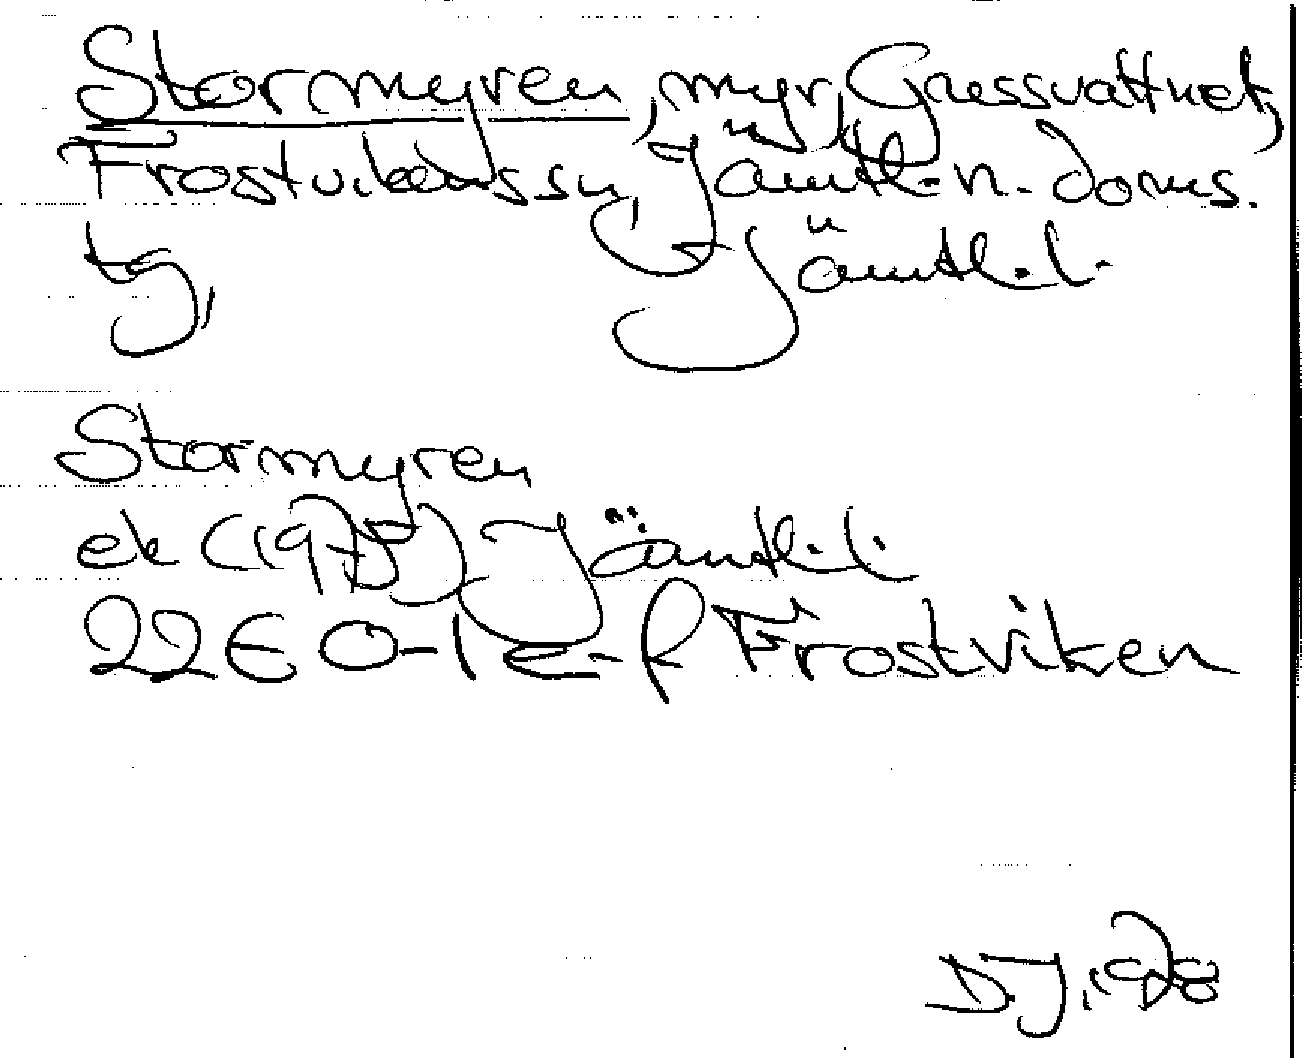 Stormyren, myr, Gussvattnet,
Frostvikens sn, Jämtl. n. doms.
tg, Jämtl. l.
Stormyren
ek (1975) Jämtl. l.
22E 0-1 e-f Frostviken
D.J.